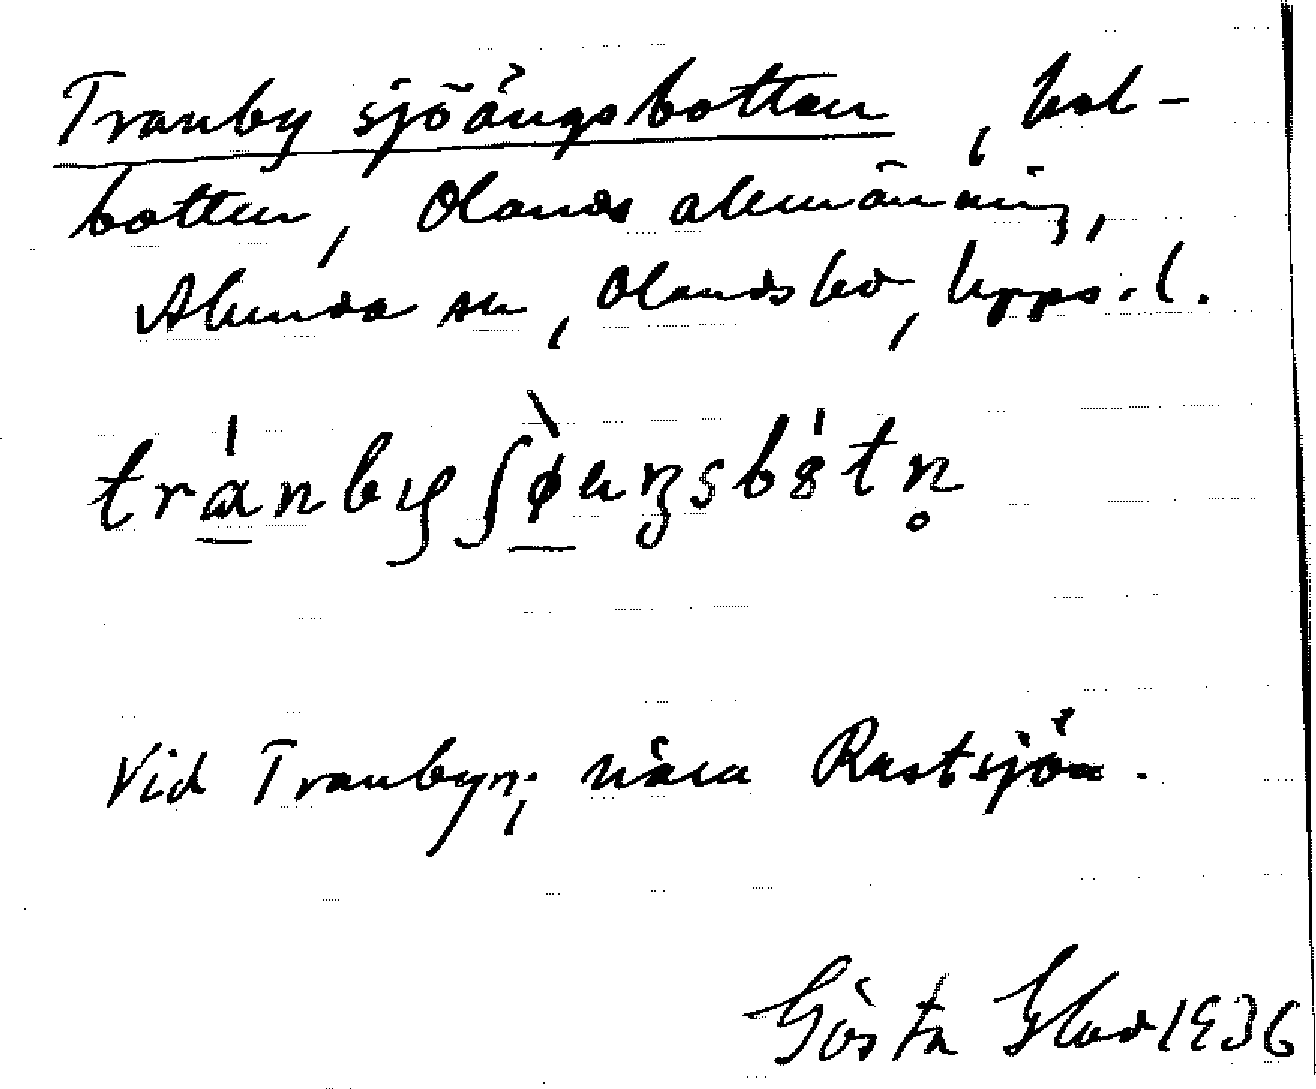 Tranby sjöängsbotten, kol-
botten, Olands allmänning,
Alunda sn, Olands hd, Upps. l.
tránbyʃø̀ŋsbótn̥
Vid Tranbyn, nära Rastsjön.
Gösta Glad 1936